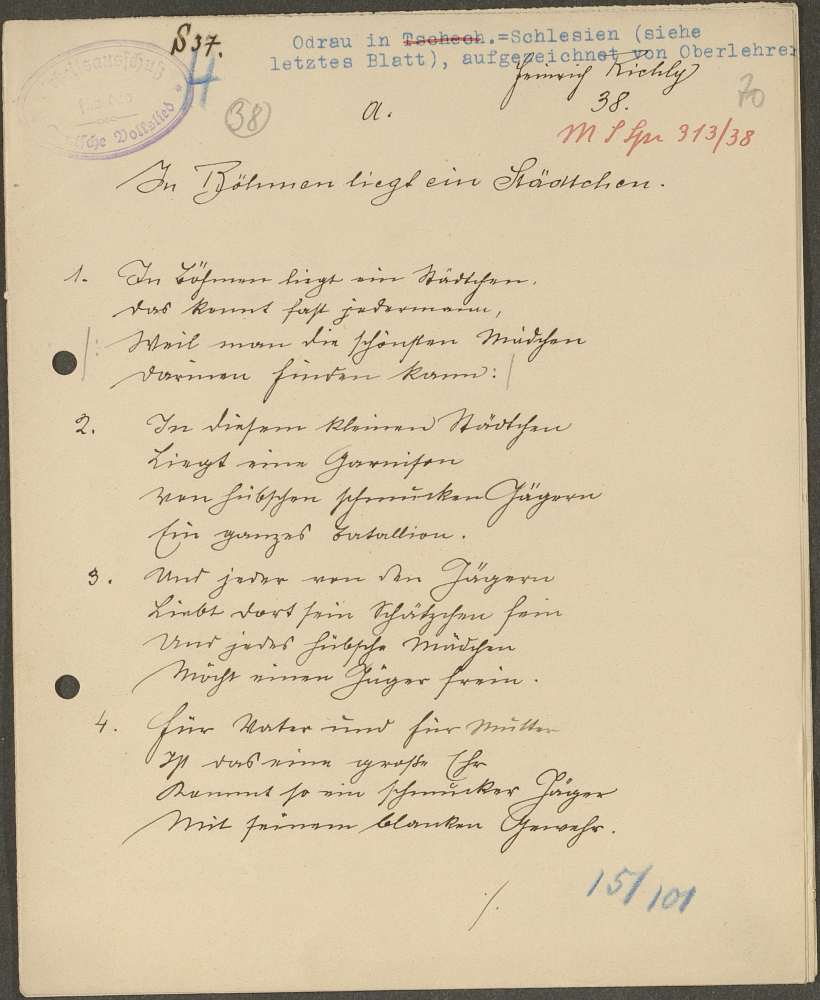 S 37.
4
Odrau in Tschech.=Schlesien (siehe
letztes Blatt), aufgezeichnet von Oberlehrer
Heinrich Richly
38.
70
(38)
a.
M S Spr 313/38
In Böhmen liegt ein Städtchen.
1. In Böhmen liegt ein Städtchen.
das kennt fast jedermann,
/: Weil man die schönsten Mädchen
darinen finden kann :/
2. In diesem kleinen Städtchen
Liegt eine Garnison
von hübschen schmucken Jägern
Ein ganzes Batallion.
3. Und jeder von den Jägern
Liebt dort sein Schätzchen fein
Und jedes hübsche Mädchen
Möcht einen Jäger frein.
4. Für Vater und für Mutter
Ist das eine große Ehr
Kommt so ein schmucker Jäger
Mit seinem blanken Gewehr.
./.
15/101